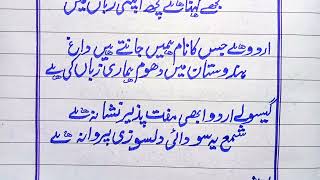 مجھے کہنا ہے کچھ اپنی زباں میں
اردو ہے جس کا نام ہمیں جانتے ہیں داغ
ہندوستان میں دھوم ہماری زباں کی ہے
گیسوئے اردو ابھی منت پذیر شانہ ہے
شمع یہ سودائی دلسوزی پروانہ ہے